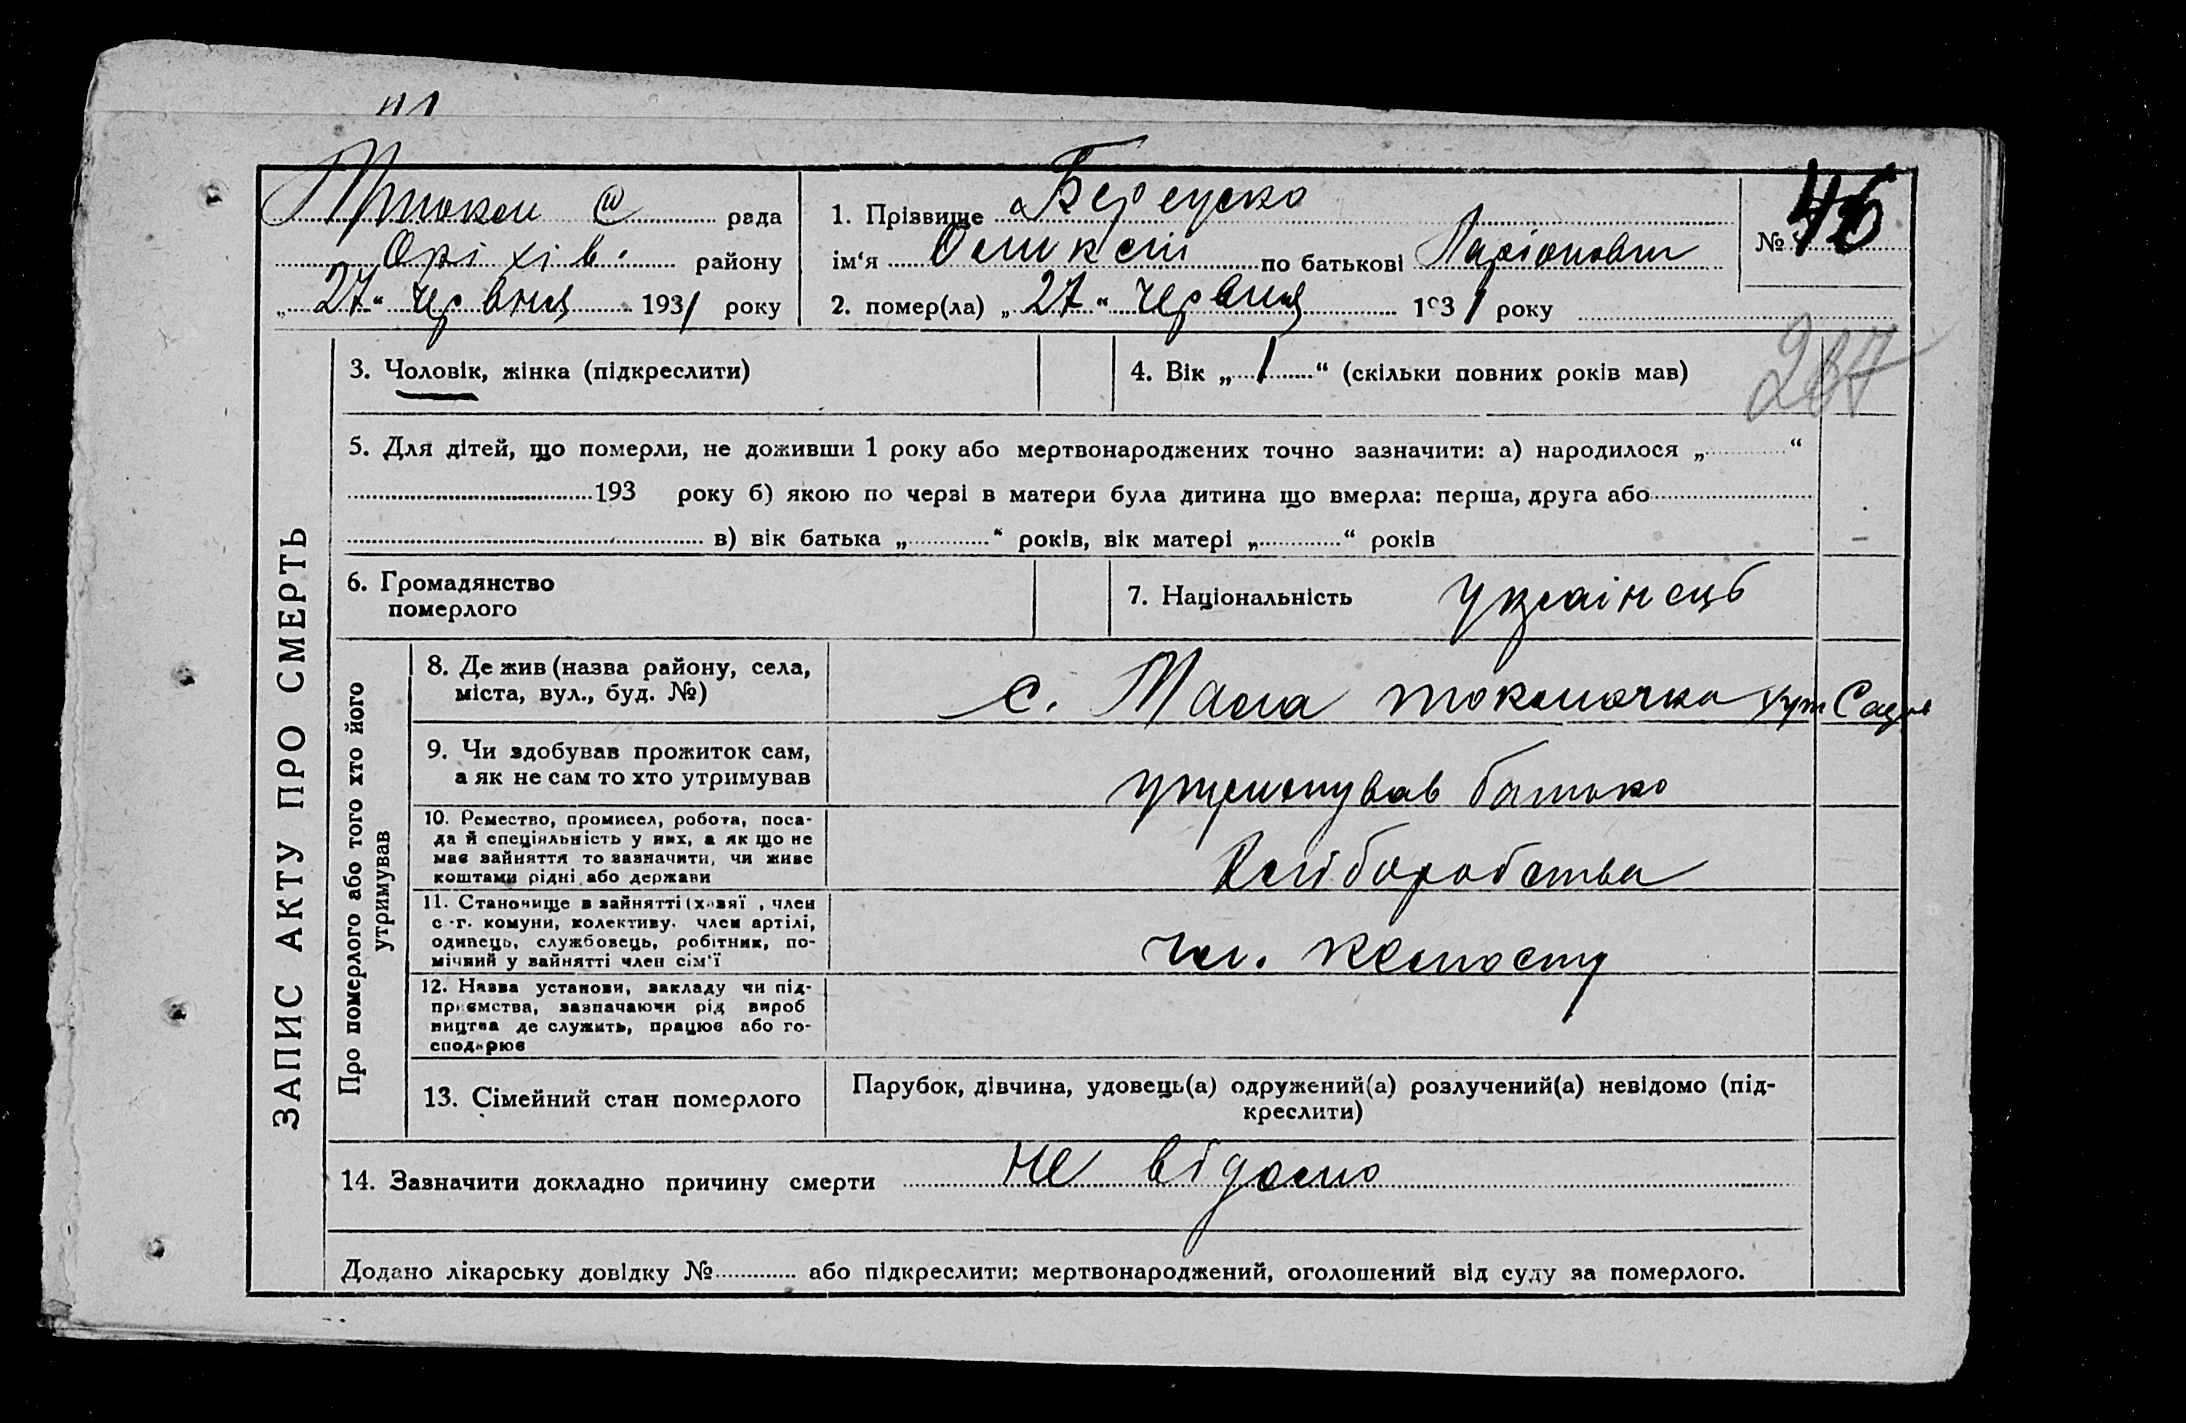 рада
Оріхів. району
„27“ червня 1931 року
1. Прізвище
ім‘я Олексій по батькові Ларіонович
2. помер(ла) „27“ червня 1931 року
№ 46
287
ЗАПИС АКТУ ПРО СМЕРТЬ
3. Чоловік, жінка (підкреслити)
4. Вік „1“ (скільки повних років мав)
5. Для дітей, що померли, не доживши 1 року або мертвонароджених точно зазначити: а) народилося „ “
193 року б) якою по черзі в матери була дитина що вмерла: перша, друга або
в) вік батька „ “ років, вік матері „ “ років
6. Громадянство
померлого
7. Національність українець
Про померлого або того хто його
утримував
8. Де жив (назва району, села,
міста, вул., буд. №)
с. Мала токмачка хут
9. Чи здобував прожиток сам,
а як не сам то хто утримував
утримував батько
10. Ремество, промисел, робота, поса-
да й спеціяльність у них, а як що не
має зайняття то зазначити, чи живе
коштами рідні або держави
Хліборобство
11. Становище в зайнятті (хазяї , член
с.-г. комуни, колективу. член артілі,
одинець, службовець, робітник, по-
мічний у зайнятті член сім‘ї
чл.
12. Назва установи, закладу чи під-
приємства, зазначаючи рід вироб
ництва де служить, працює або го-
сподарює
13. Сімейний стан померлого
Парубок, дівчина, удовець(а) одружений(а) розлучений(а) невідомо (під-
креслити)
14. Зазначити докладно причину смерти не відомо
Додано лікарську довідку № або підкреслити: мертвонароджений, оголошений від суду за померлого.